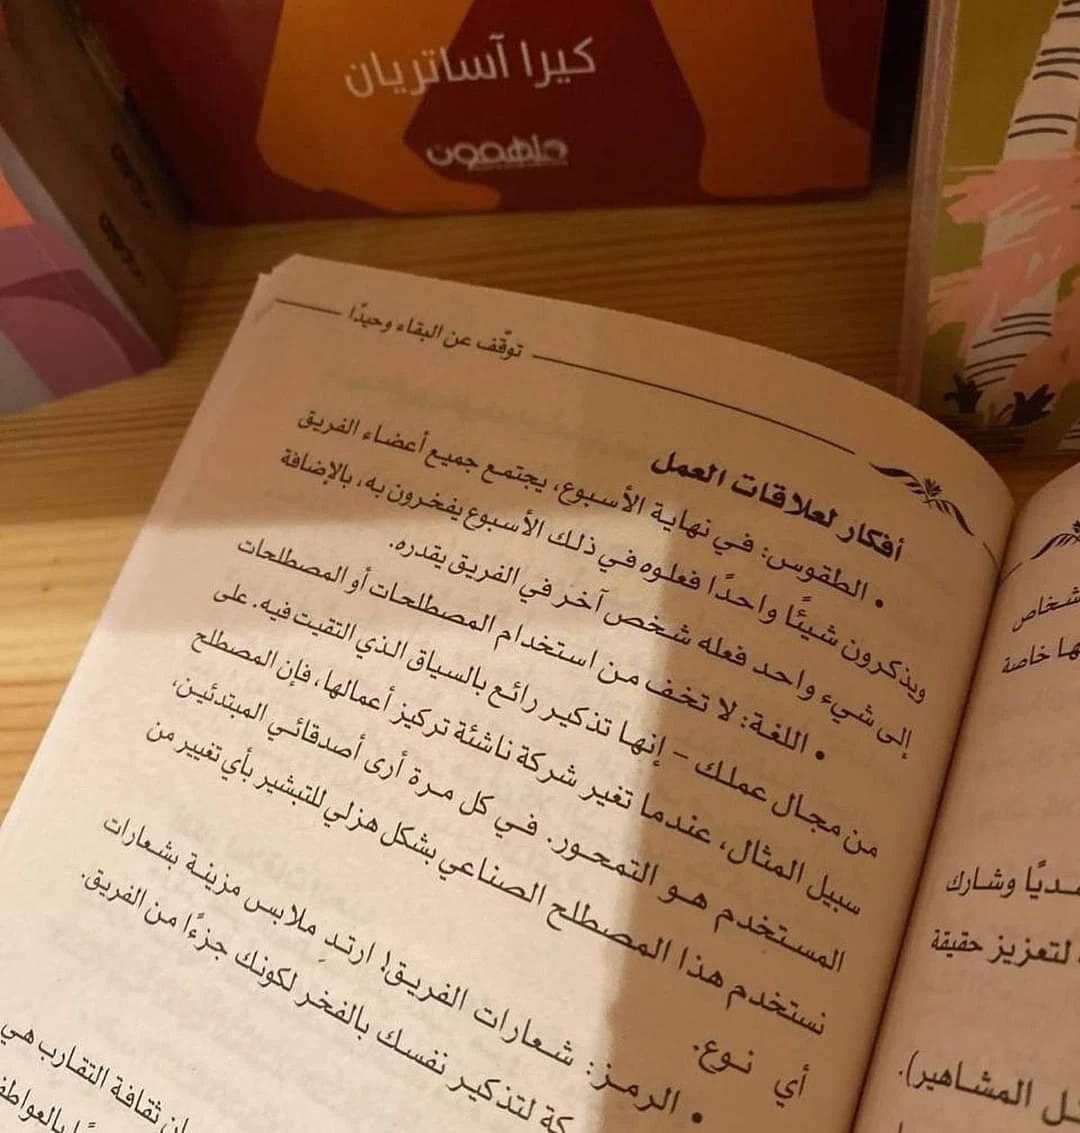 كيرا آساتريان
ملهمون
توقّف عن البقاء وحيدًا
أفكار لعلاقات العمل
• الطقوس: في نهاية الأسبوع، يجتمع جميع أعضاء الفريق
ويذكرون شيئًا واحدًا فعلوه في ذلك الأسبوع يفخرون به، بالإضافة
إلى شيء واحد فعله شخص آخر في الفريق يقدره.
• اللغة: لا تخف من استخدام المصطلحات أو المصطلحات
من مجال عملك – إنها تذكير رائع بالسياق الذي التقيت فيه. على
سبيل المثال، عندما تغير شركة ناشئة تركيز أعمالها، فإن المصطلح
المستخدم هو التمحور. في كل مرة أرى أصدقائي المبتدئين،
نستخدم هذا المصطلح الصناعي بشكل هزلي للتبشير بأي تغيير من
أي نوع.
• الرمز: شعارات الفريق! ارتدِ ملابس مزينة بشعارات
لتذكير نفسك بالفخر لكونك جزءًا من الفريق.
ثقافة التقارب هي
بالعواطف
شخاص
ها خاصة
وشارك
لتعزيز حقيقة
المشاهير).